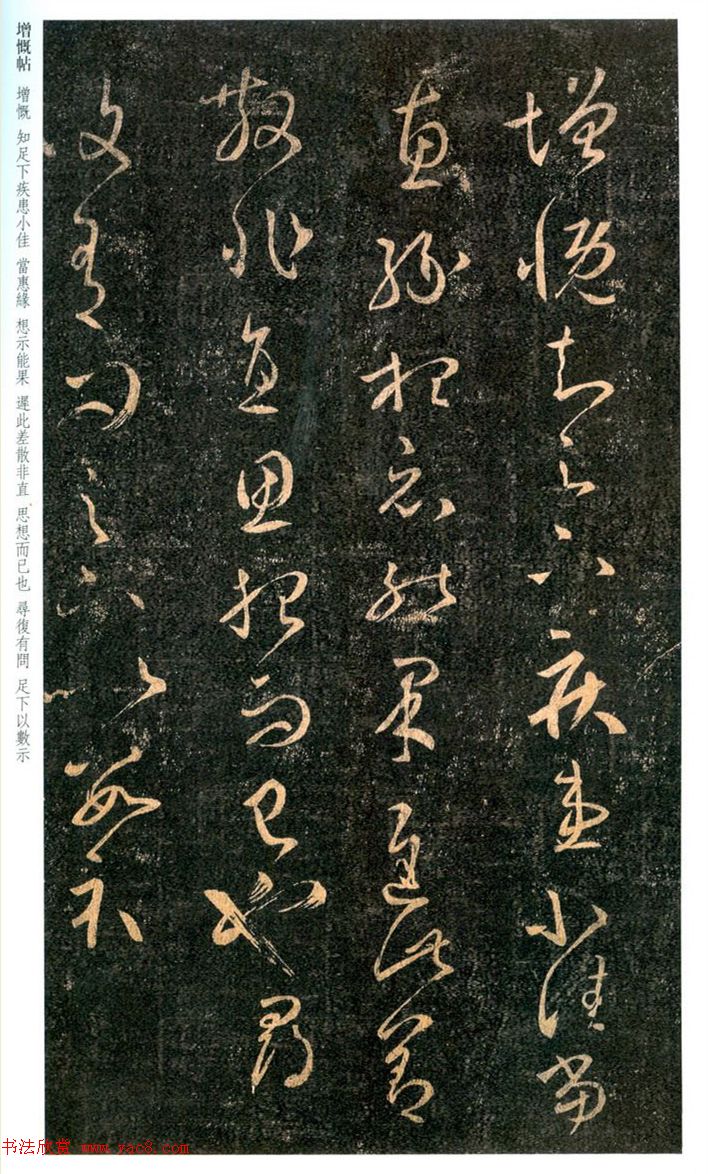 增慨知足下疾患小佳當
惠緣想示能果遲此差
散非直思想而已也尋
復有問足下以數示
增慨帖 增慨 知足下疾患小佳 當惠緣 想示能果 遲此差散非直 思想而已也 尋復有問 足下以數示
书法欣赏 www.yac8.com